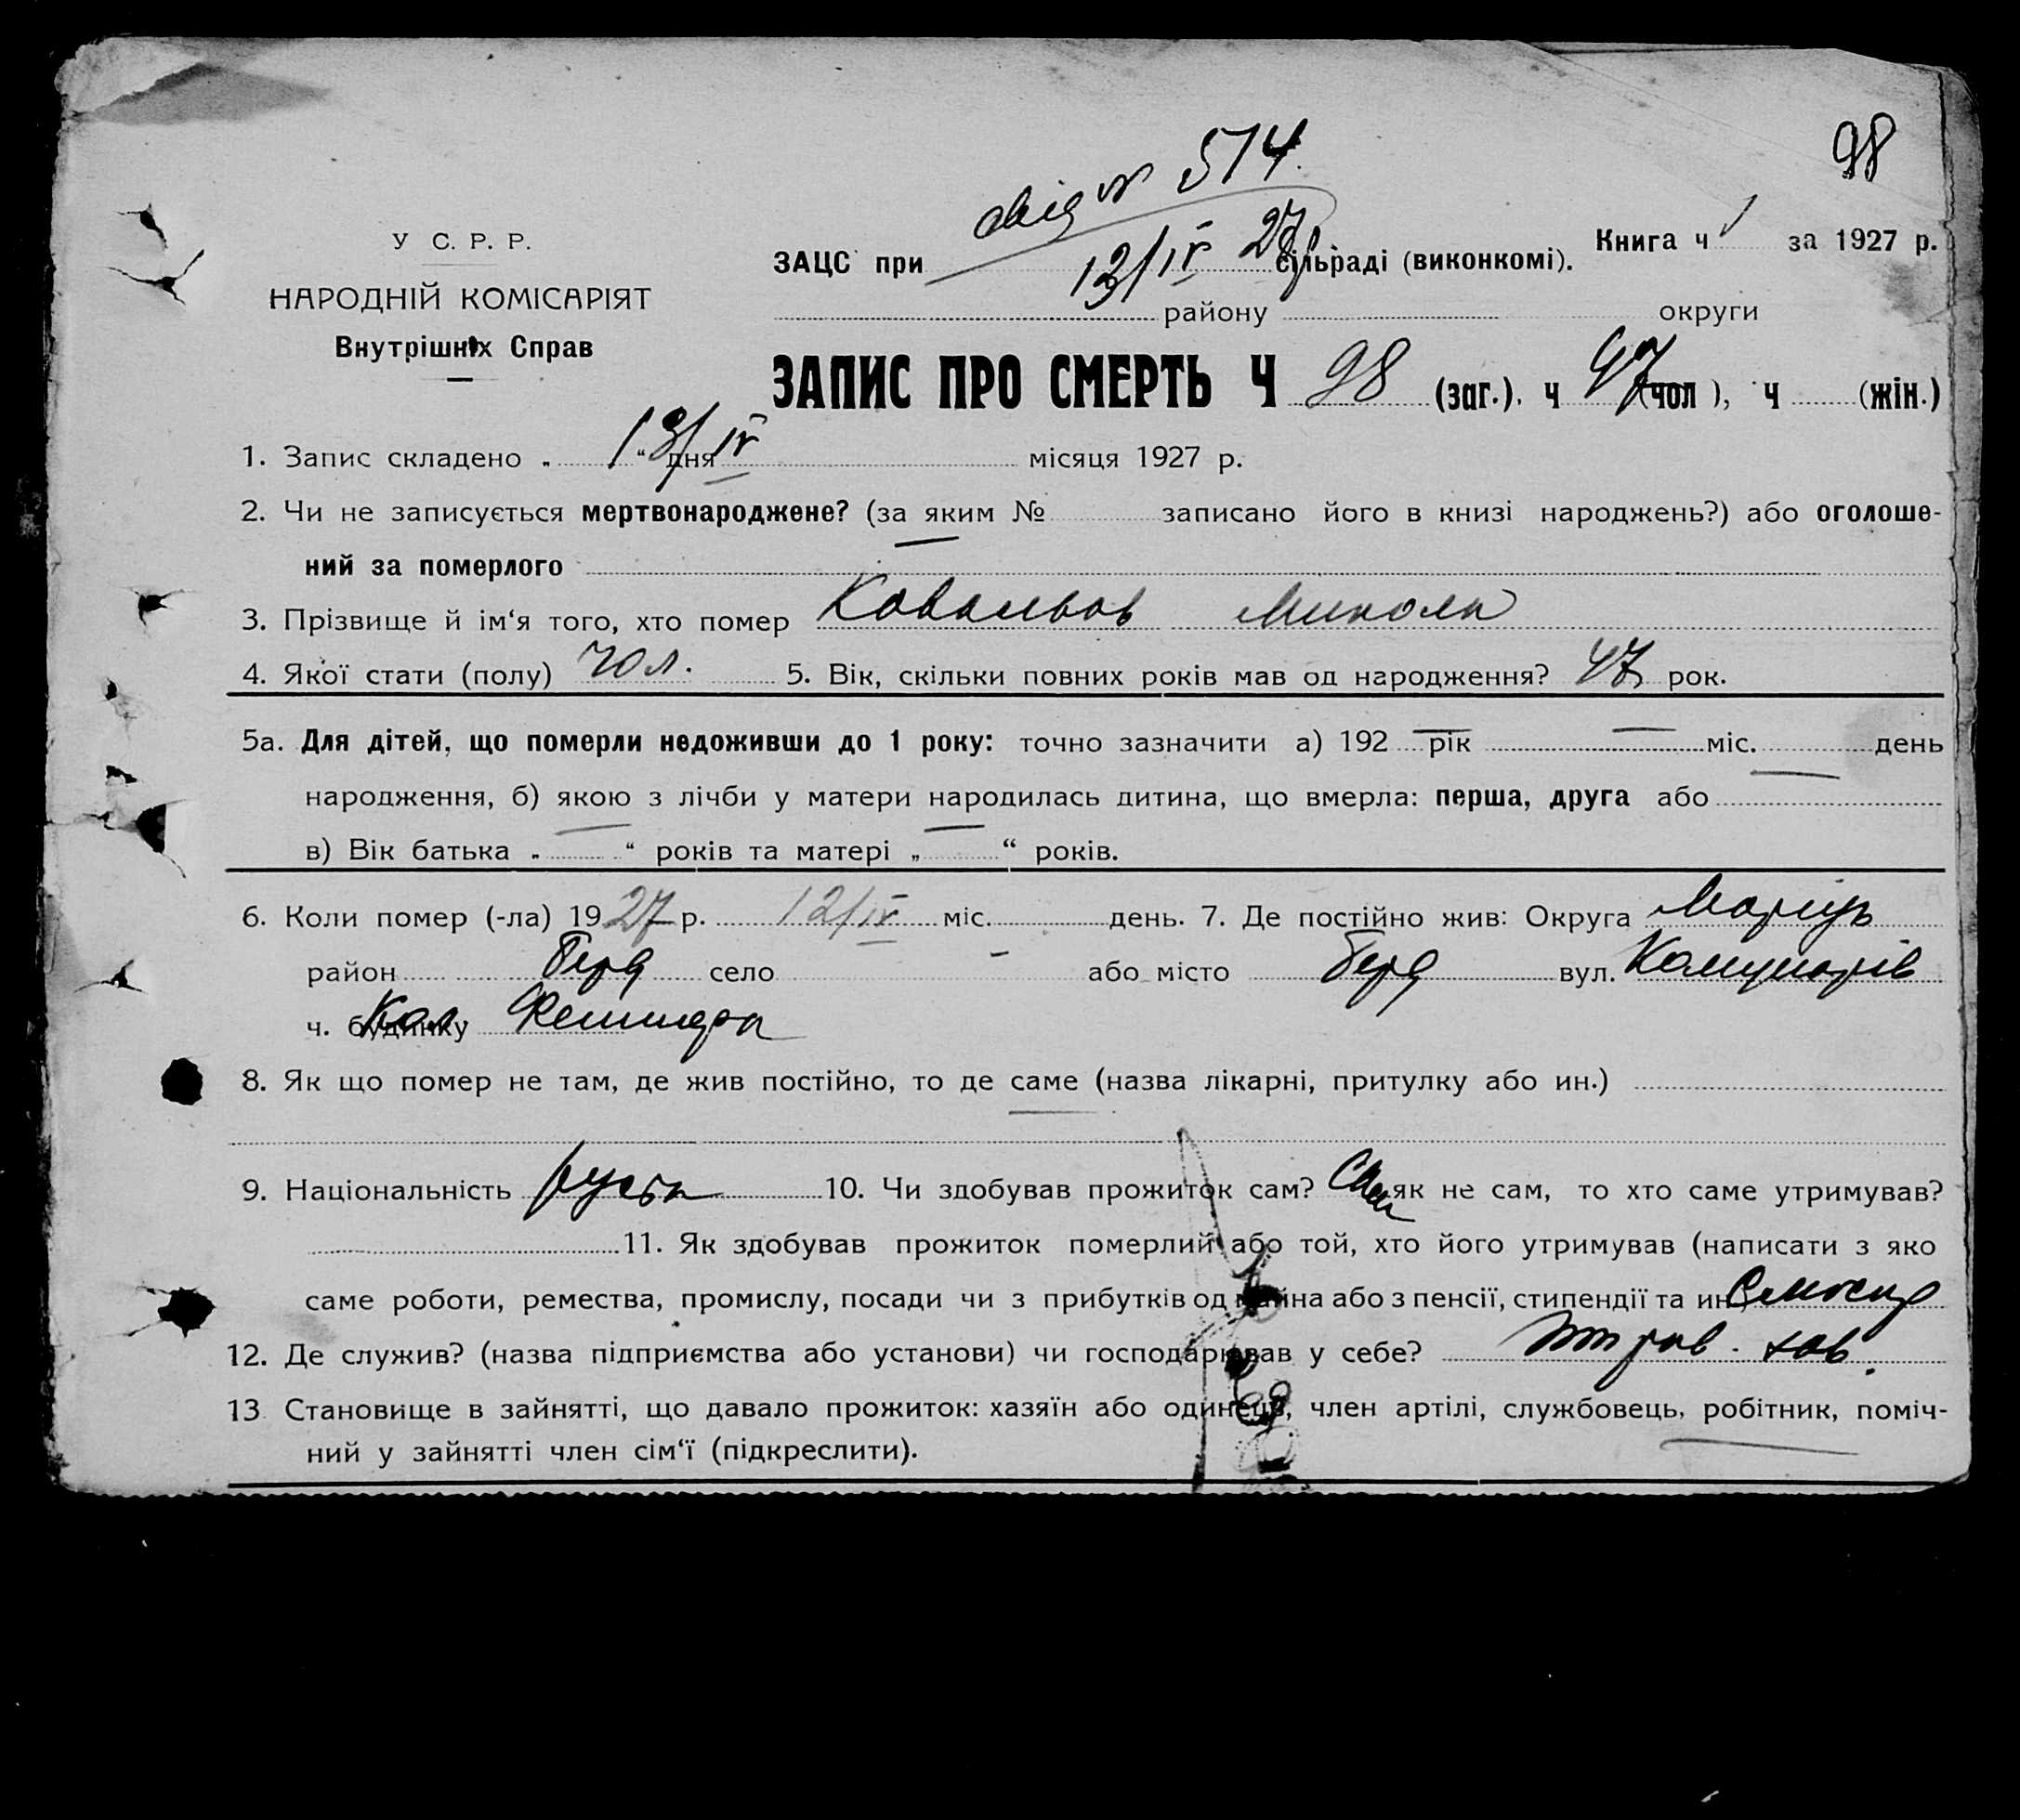 98
свід № 514.
13/IV 27 р
У С. Р. Р.
НАРОДНІЙ КОМІСАРІЯТ
Внутрішніх Справ
ЗАЦС при сільраді (виконкомі). Книга ч 1 за 1927 р.
району округи
ЗАПИС ПРО СМЕРТЬ Ч 98 (заг.). ч 47 (чол), ч (жін.)
1. Запис складено „ 13/IV “ дня місяця 1927 р.
2. Чи не записується мертвонароджене? (за яким № записано його в книзі народжень?) або оголоше-
ний за померлого —
3. Прізвище й ім‘я того, хто помер Ковальов Микола
4. Якої стати (полу) чол. 5. Вік, скільки повних років мав од народження? 47 рок.
5а. Для дітей, що померли недоживши до 1 року: точно зазначити а) 192 — рік — міс. — день
народження, б) якою з лічби у матери народилась дитина, що вмерла: перша, друга або
в) Вік батька „ — “ років та матері „ — “ років.
6. Коли помер (-ла) 1927 р. 12/IV міс. день. 7. Де постійно жив: Округа Маріуп
район Берд село - або місто Берд вул. Комунарів
ч. будинку Кол.
8. Як що помер не там, де жив постійно, то де саме (назва лікарні, притулку або ин.)
—
9. Національність руськ 10. Чи здобував прожиток сам? Сам як не сам, то хто саме утримував?
11. Як здобував прожиток померлий або той, хто його утримував (написати з яко
саме роботи, ремества, промислу, посади чи з прибутків од майна або з пенсії, стипендії та ин.)
12. Де служив? (назва підприємства або установи) чи господарював у себе?
13 Становище в зайнятті, що давало прожиток: хазяїн або одинець, член артілі, службовець, робітник, поміч-
ний у зайнятті член сім‘ї (підкреслити).